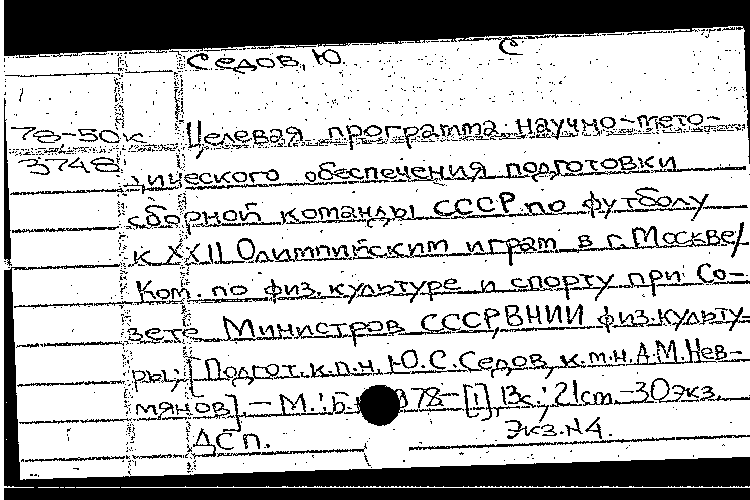 Седов, Ю. С
78-50к Целевая программа научно-мето-
3748 дического обеспечения подготовки
сборной команды СССР по футболу
к XXII Олимпийским играм в г. Москве/
Ком. по физ. культуре и спорту при Со-
вете Министров СССР, ВНИИ физ. культу-
ры; [Подгот. к.п.н. Ю.С. Седов, к.м.н. А.М. Нев-
мянов]. — М.: Б. 1978- [1], 13с.; 21см. -30экз.
ДСП. Экз. N4.